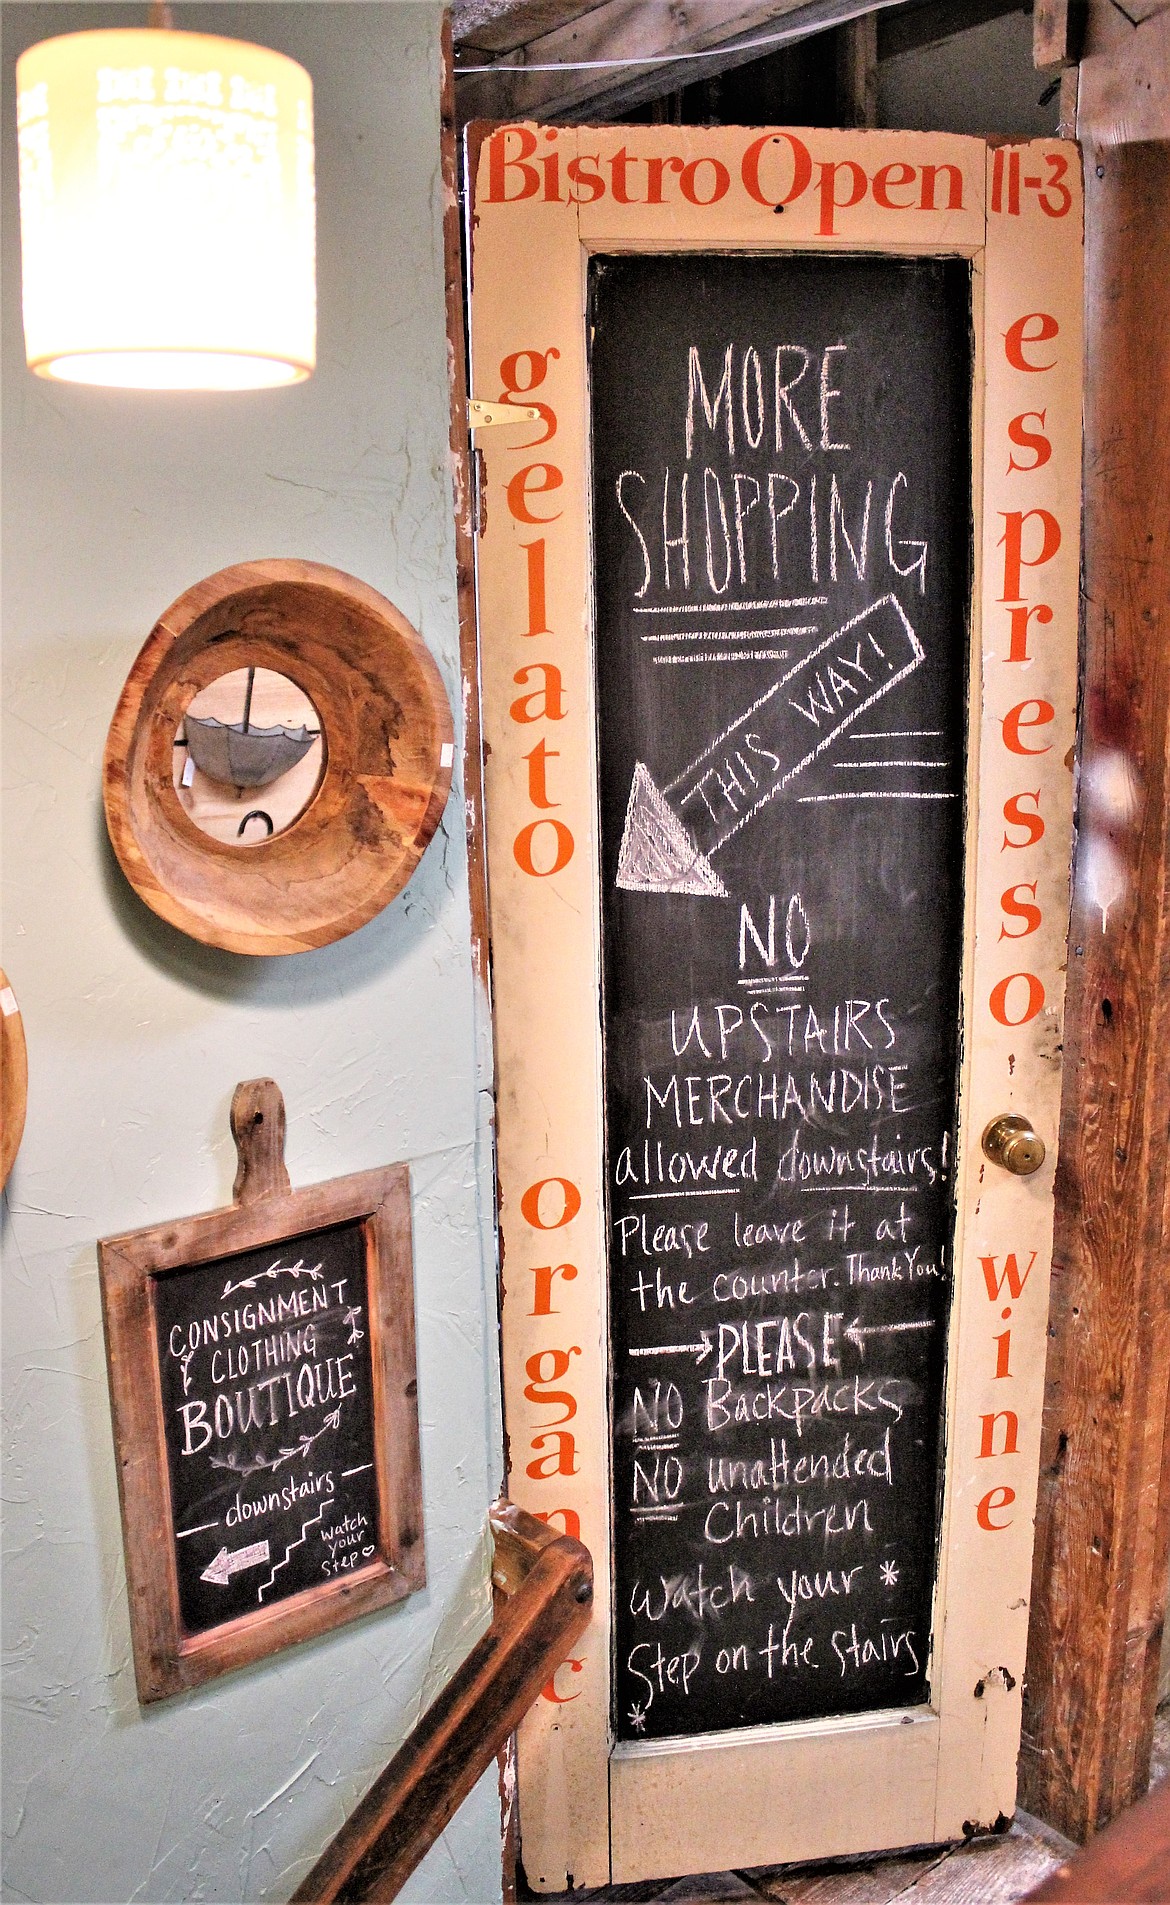 Bistro Open 11-3
gelato
organ c
espresso
wine
MORE
SHOPPING
THIS WAY!
NO
UPSTAIRS
MERCHANDISE
allowed downstairs!
Please leave it at
the counter. Thank You!
PLEASE
NO Backpacks
NO unattended
Children
Watch your *
Step on the stairs
*
CONSIGNMENT
CLOTHING
BOUTIQUE
downstairs
watch
your
step